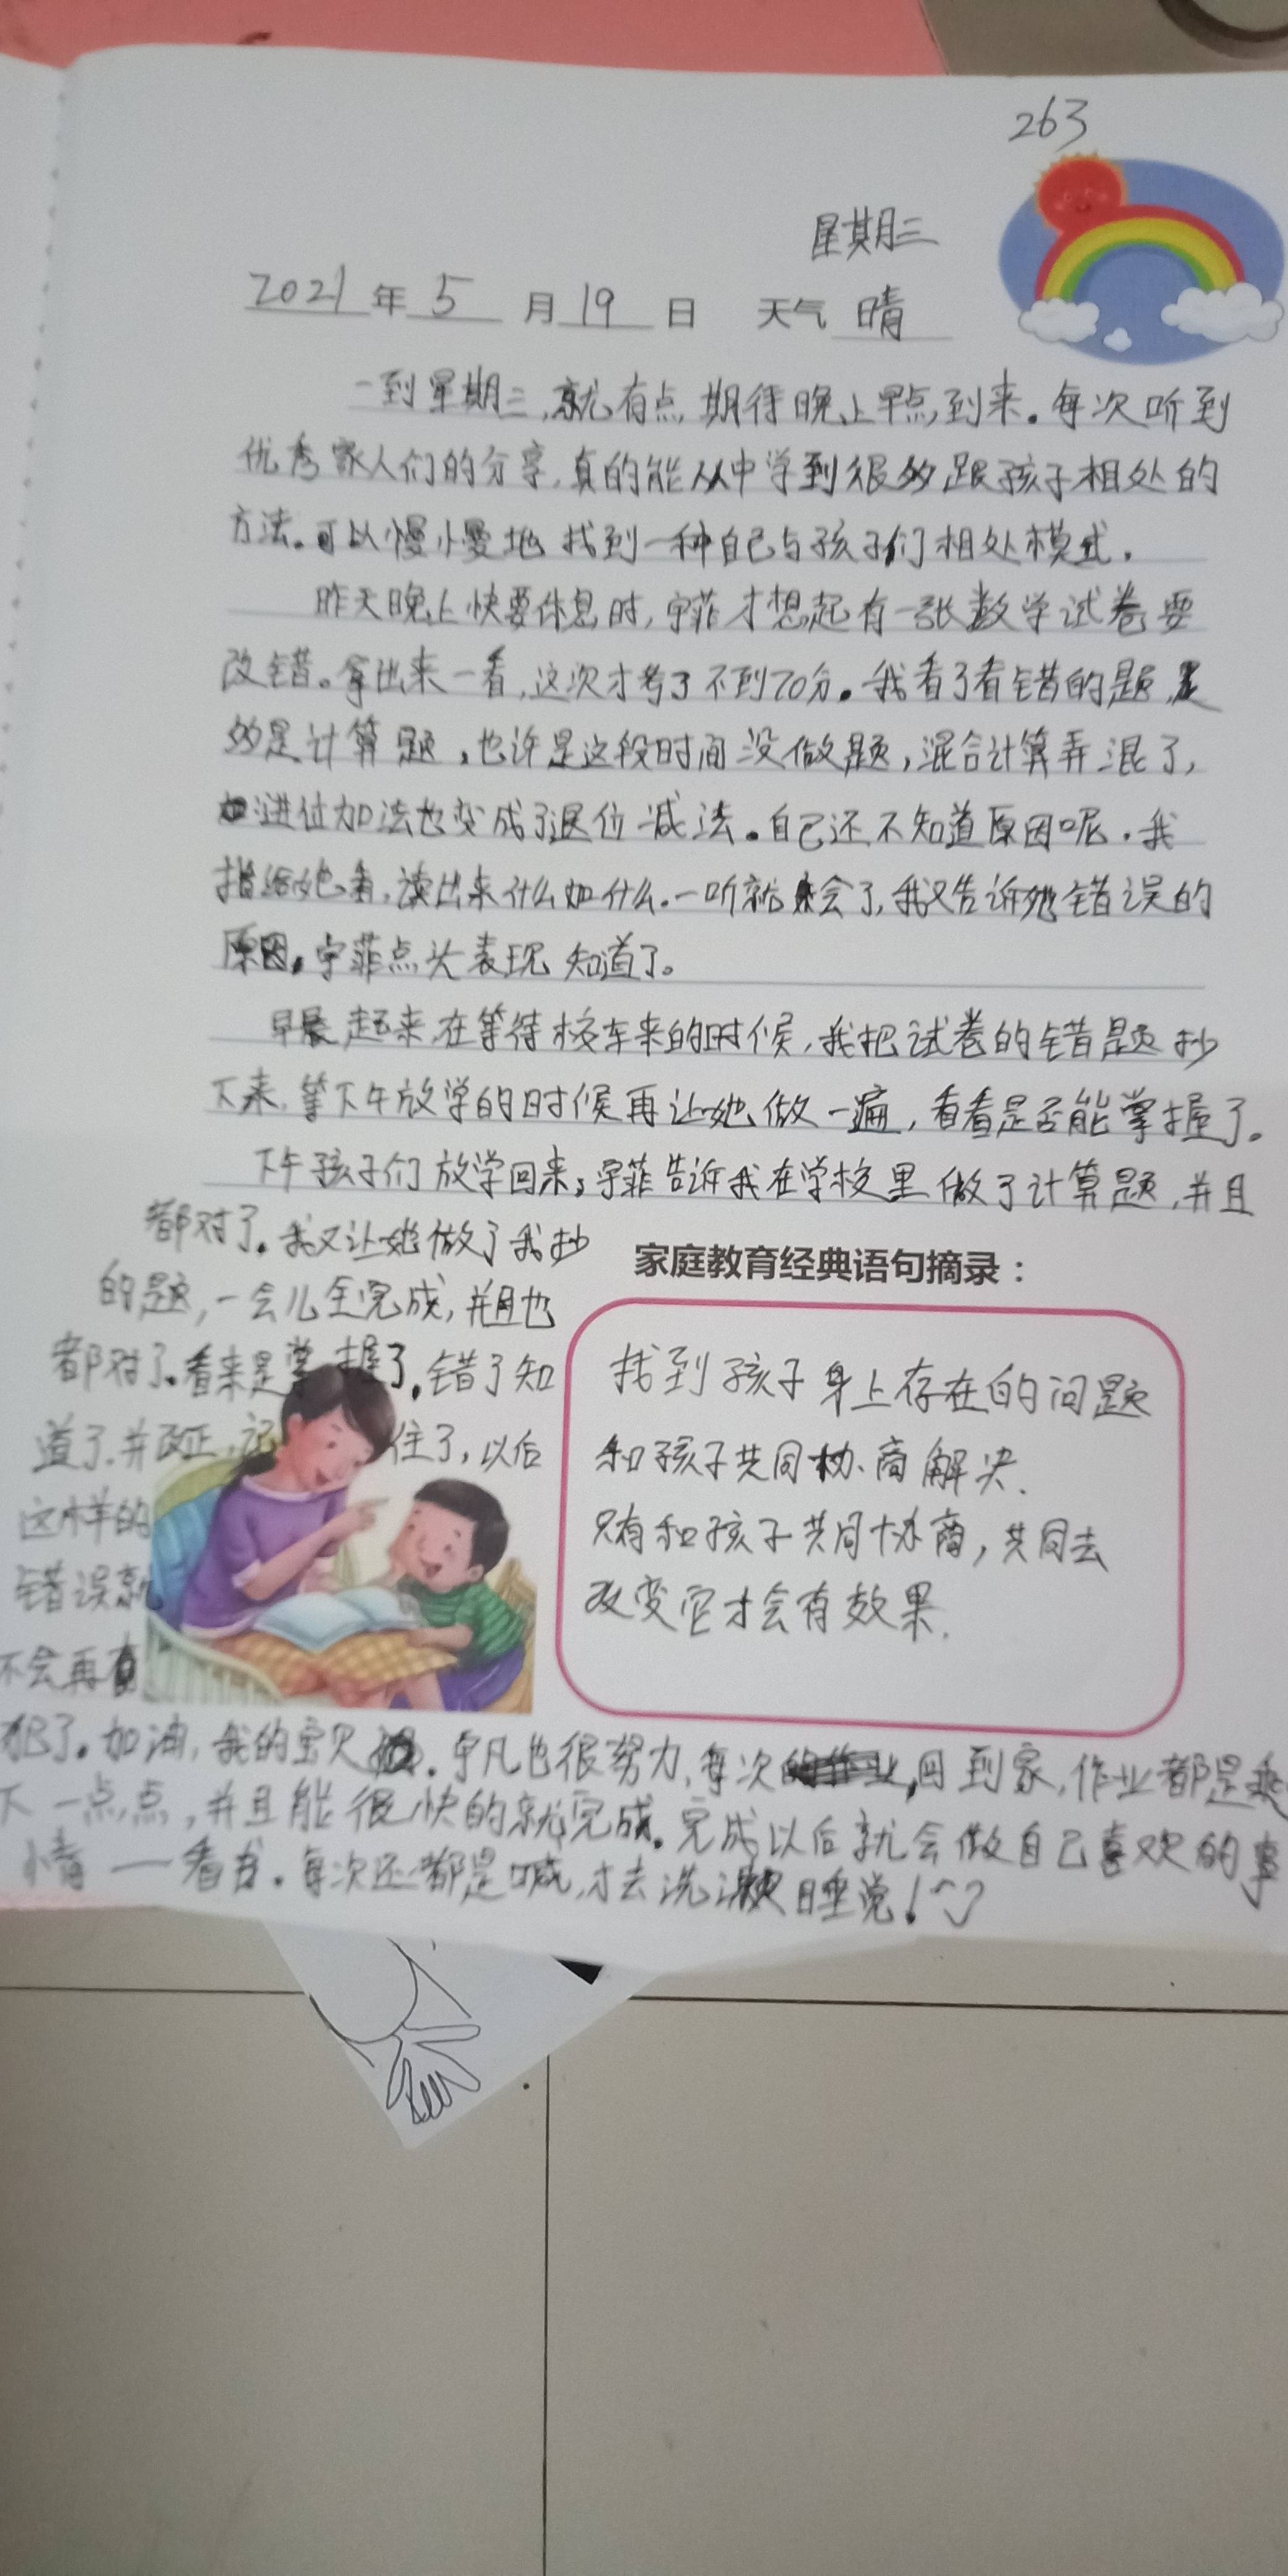 263
星期三
2021年5月19日 天气晴
一到星期三,就有点期待晚上早点到来。每次听到
优秀家人们的分享,真的能从中学到很多跟孩子相处的
方法。可以慢慢地找到一种自己与孩子们相处模式.
昨天晚上快要休息时,宇菲才想起有一张数学试卷要
改错。拿出来一看,这次才考了不到70分。我看了看错的题,
多是计算题,也许是这段时间没做题,混合计算弄混了,
进位加法也变成了退位减法。自己还不知道原因呢.我
指给她看,读出来什么加什么.一听就会了,我又告诉她错误的
原因,宇菲点头表现知道了。
早晨起来,在等待校车来的时候,我把试卷的错题抄
下来,等下午放学的时候再让她做一遍,看看是否能掌握了。
下午孩子们放学回来,宇菲告诉我在学校里做了计算题,并且
都对了。我又让她做了我抄
的题,一会儿全完成,并且也
都对了。看来是掌握了,错了知
道了.并改正,记住了,以后
这样的
错误就
不会再
犯了。加油,我的宝贝.宇凡也很努力,每次回到家,作业都是剩
下一点点,并且能很快的就完成。完成以后就会做自己喜欢的事
情——看书.每次还都是喊,才去洗漱睡觉!
家庭教育经典语句摘录:
找到孩子身上存在的问题
和孩子共同协商解决.
只有和孩子共同协商,共同去
改变它才会有效果.